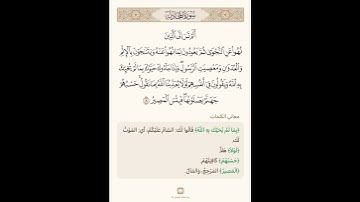 أَلَمْ تَرَ إِلَى ٱلَّذِينَ
نُهُوا۟ عَنِ ٱلنَّجْوَىٰ ثُمَّ يَعُودُونَ لِمَا نُهُوا۟ عَنْهُ وَيَتَنَٰجَوْنَ بِٱلْإِثْمِ
وَٱلْعُدْوَٰنِ وَمَعْصِيَتِ ٱلرَّسُولِ وَإِذَا جَآءُوكَ حَيَّوْكَ بِمَا لَمْ يُحَيِّكَ
بِهِ ٱللَّهُ وَيَقُولُونَ فِىٓ أَنفُسِهِمْ لَوْلَا يُعَذِّبُنَا ٱللَّهُ بِمَا نَقُولُ حَسْبُهُمْ
جَهَنَّمُ يَصْلَوْنَهَا فَبِئْسَ ٱلْمَصِيرُ ٨
معاني الكلمات
﴿بِمَا لَمْ يُحَيِّكَ بِهِ اللَّهُ﴾ قَالُوا لَكَ: السَّامُ عَلَيْكُمْ، أَيِ: المَوْتُ
لَكَ.
﴿لَوْلَا﴾ هَلَّا.
﴿حَسْبُهُمْ﴾ كَافِيَتُهُمْ.
﴿الْمَصِيرُ﴾ المَرْجِعُ، وَالمَآلُ.